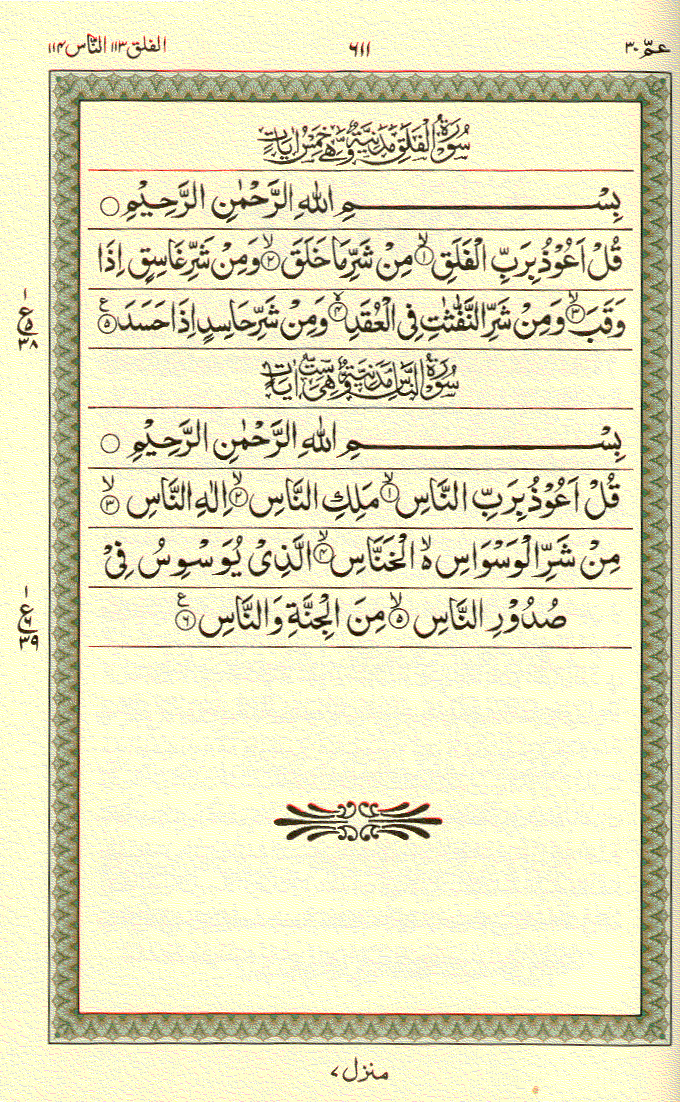 عمّ ٣٠ ٦١١ الفلق ١١٣ النّاس ١١٤
سُوْرَةُ الْفَلَقِ مَدَنِيَّةٌ وَّهِيَ خَمْسُ اٰيَاتٍ
بِسْمِ اللّٰهِ الرَّحْمٰنِ الرَّحِيْمِ ○
قُلْ اَعُوْذُ بِرَبِّ الْفَلَقِ ۙ﴿۱﴾ مِنْ شَرِّ مَا خَلَقَ ۙ﴿۲﴾ وَمِنْ شَرِّ غَاسِقٍ اِذَا
وَقَبَ ۙ﴿۳﴾ وَمِنْ شَرِّ النَّفّٰثٰتِ فِی الْعُقَدِ ۙ﴿۴﴾ وَمِنْ شَرِّ حَاسِدٍ اِذَا حَسَدَ ﴿۵﴾ ع
١ ع ٥ ٣٨
سُوْرَةُ النَّاسِ مَدَنِيَّةٌ وَّهِيَ سِتُّ اٰيَاتٍ
بِسْمِ اللّٰهِ الرَّحْمٰنِ الرَّحِيْمِ ○
قُلْ اَعُوْذُ بِرَبِّ النَّاسِ ۙ﴿۱﴾ مَلِكِ النَّاسِ ۙ﴿۲﴾ اِلٰهِ النَّاسِ ۙ﴿۳﴾
مِنْ شَرِّ الْوَسْوَاسِ ۙ۬ الْخَنَّاسِ ۙ﴿۴﴾ الَّذِیْ یُوَسْوِسُ فِیْ
صُدُوْرِ النَّاسِ ۙ﴿۵﴾ مِنَ الْجِنَّةِ وَالنَّاسِ ﴿۶﴾ ع
١ ع ٦ ٣٩
منزل ٧